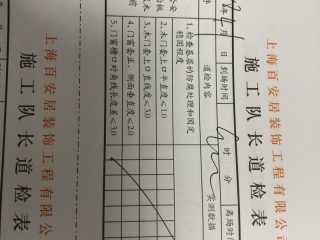 上海百安居装饰工程有限公司
施工队长道检表
年 月 日 到场时间 时 分 离场时
道检内容 实测数据
1、检查基层的防腐处理和固定
稳固程度
2、木门套上口平直度≤1.0
3、木门套上口直线度≤3.0
4、门窗套正、侧面垂直度≤2.0
5、门窗槽口对角线长度差≤3.0
上海百安居装饰工程有限公
施工队长道检表